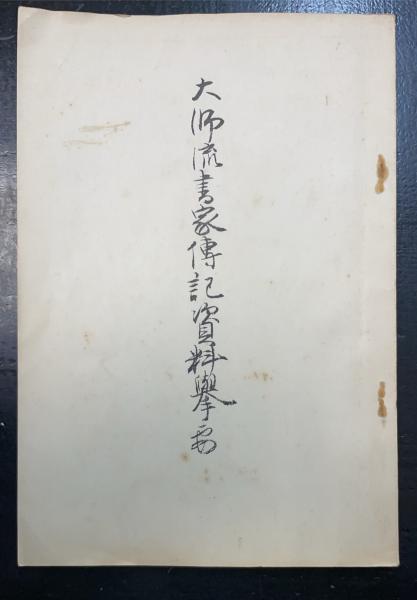 大師流書家傳記資料擧要